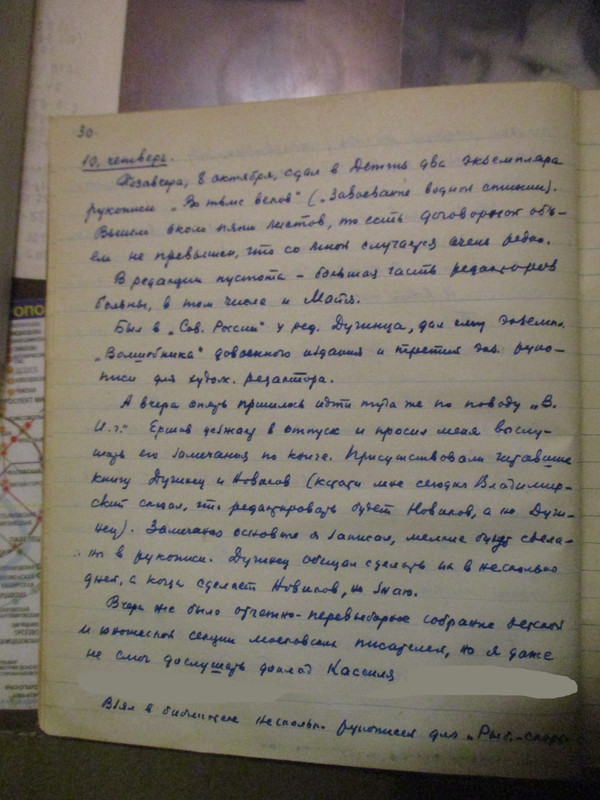 30.
10, четверг.
Позавчера, 8 октября, сдал в Детгиз два экземпляра
рукописи „Во тьме веков“ („Завоевание водной стихии“).
Вышло около пяти листов, то есть договорной объ-
ем не превышен, что со мной случается очень редко.
В редакции пустота – большая часть редакторов
больны, в том числе и Майя.
Был в „Сов. России“ у ред. Дугинца, дал ему экземпл.
„Волшебника“ довоенного издания и третий экз. руко-
писи для худож. редактора.
А вчера опять пришлось идти туда же по поводу „В.
И. г.“ Ершов уезжает в отпуск и просил меня выслу-
шать его замечания по книге. Присутствовали читавшие
книгу Дугинец и Новиков (кстати мне сегодня Владимир-
ский сказал, что редактировать будет Новиков, а не Дуги-
нец). Замечания основные я записал, мелкие будут сдела-
ны в рукописи. Дугинец обещал сделать их в несколько
дней, а когда сделает Новиков, не знаю.
Вчера же было отчетно-перевыборное собрание детской
и юношеской секции московских писателей, но я даже
не смог дослушать доклад Кассиля
Взял в библиотеке несколько рукописей для „Рыб.-спорт